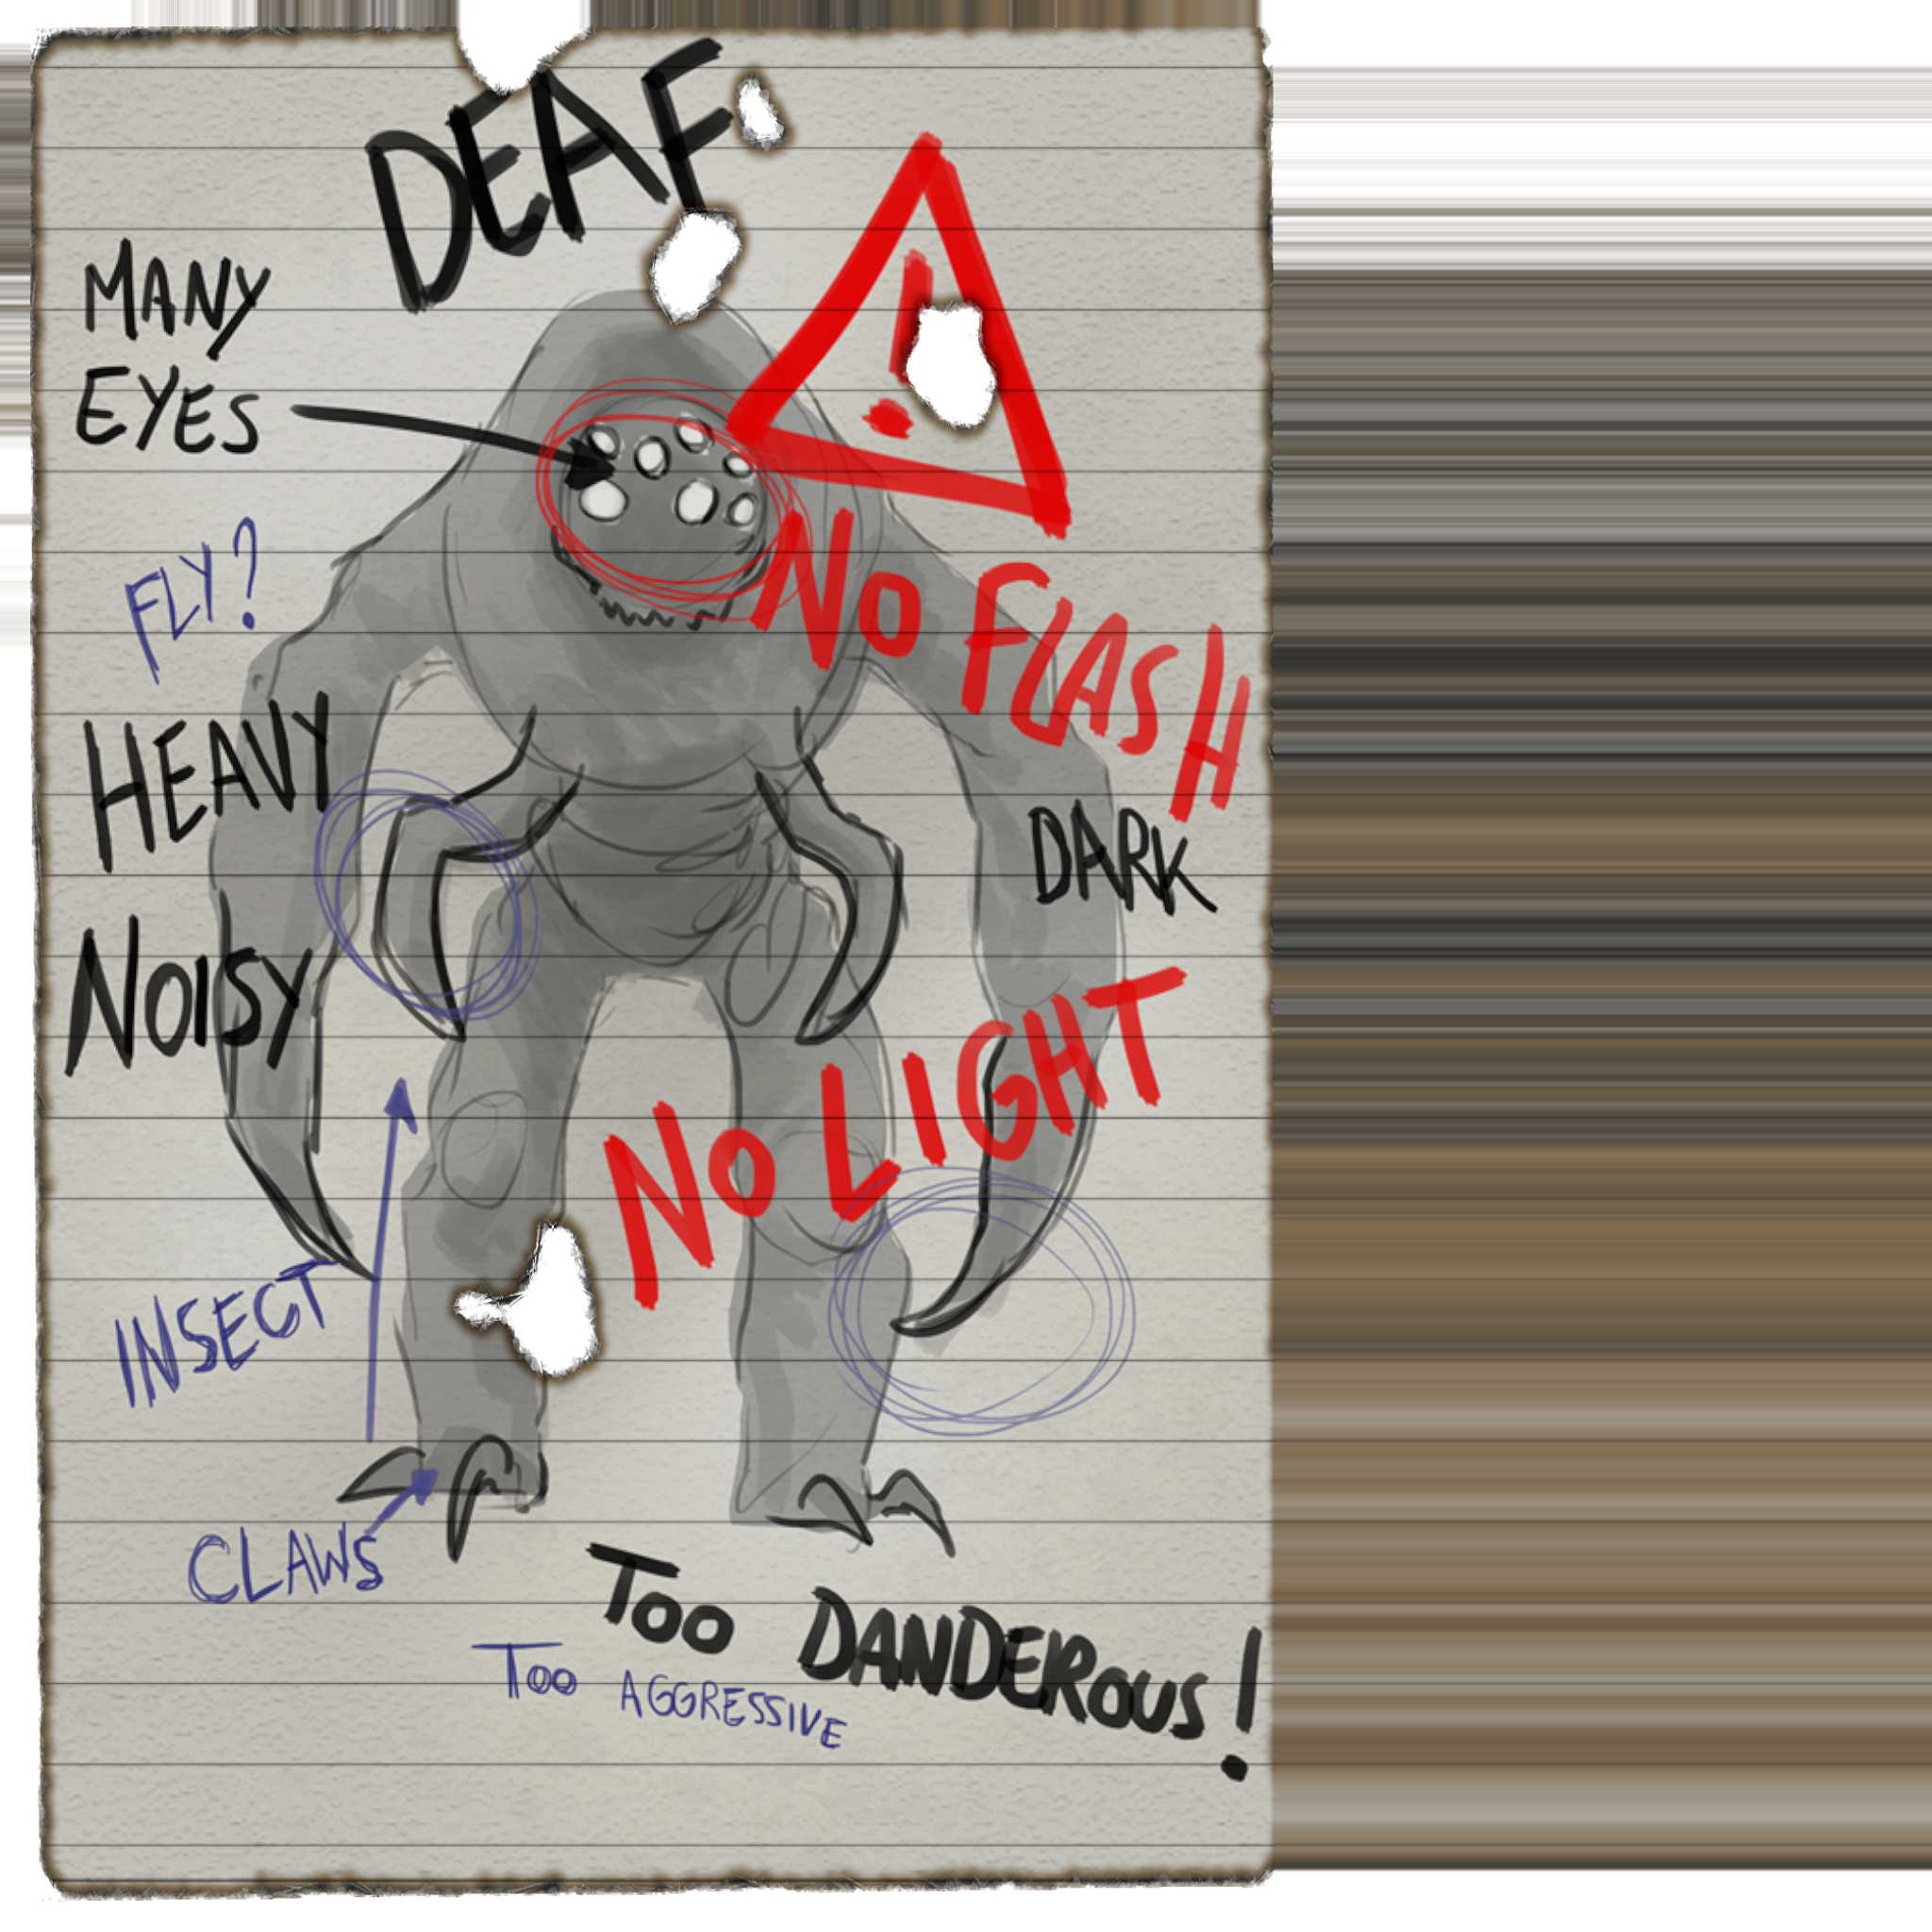 DEAF
MANY
EYES
FLY?
NO FLASH
HEAVY
DARK
NOISY
NO LIGHT
INSECT
CLAWS
TOO DANDEROUS!
TOO AGGRESSIVE